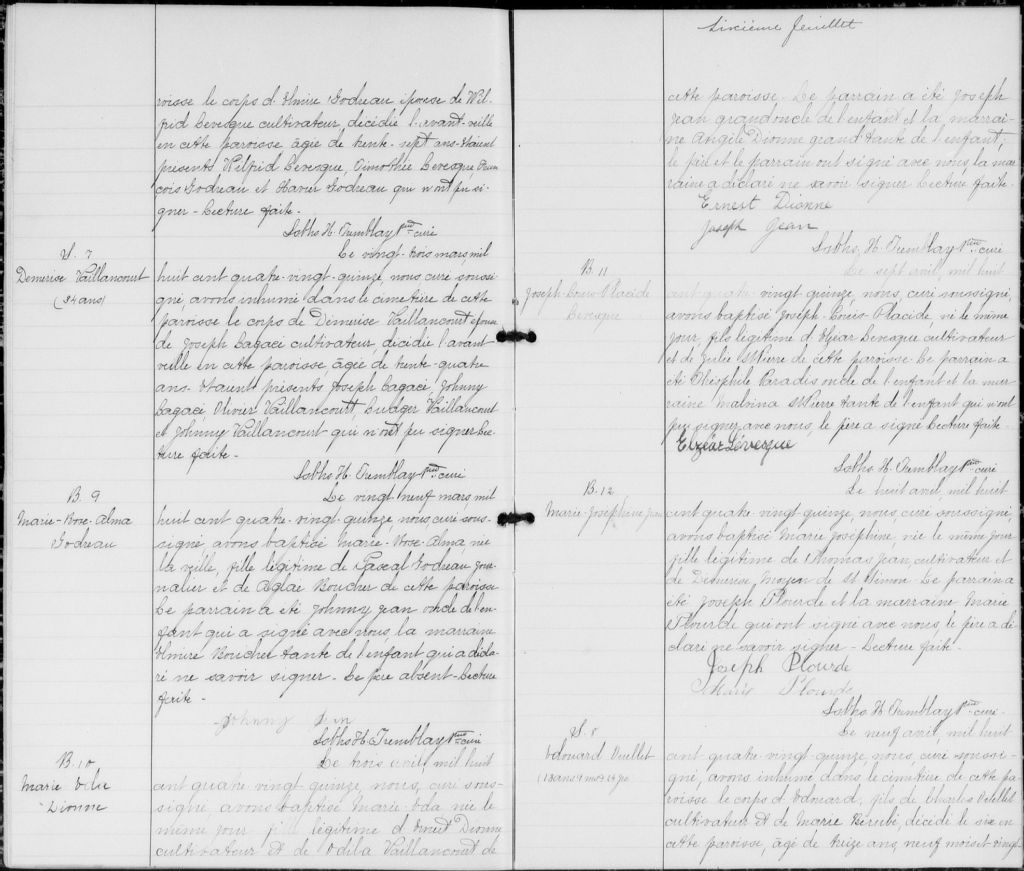 roisse le corps d'Elmire Godreau épouse de Wil-
frid Levesque cultivateur, décédée l'avant-veille
en cette paroisse âgée de trente-sept ans. Etaient
présents Wilfrid Levesque, Timothée Levesque, Fran-
cois Godreau et Xavier Godreau qui n'ont pu si-
gner - Lecture faite -
H. Tremblay Ptre curé
S. 7
Demerise Vaillancourt
(34 ans)
Le vingt-trois mars, mil
huit cent quatre-vingt-quinze, nous, curé soussi-
gné avons inhumé dans le cimetière de cette
paroisse le corps de Demerise Vaillancourt épouse
de Joseph Lagacé cultivateur, décédée l'avant
veille en cette paroisse, âgée de trente-quatre
ans. Etaient présents Joseph Lagacé, Johnny
Lagacé, Olivier Vaillancourt, Vaillancourt
et Johnny Vaillancourt qui n'ont pu signer. Lec-
ture faite -
H. Tremblay Ptre curé
B. 9
Marie-Rose-Alma
Godreau
Le vingt-neuf mars, mil
huit cent quatre-vingt-quinze, nous, curé sous-
signé, avons baptisé Marie-Rose-Alma, née
la veille, fille légitime de Pascal Godreau jour-
nalier et de Aglaé Boucher de cette paroisse
Le parrain a été Johnny Jean oncle de l'en-
fant qui a signé avec nous, la marraine
Elmire Boucher tante de l'enfant qui a décla-
ré ne savoir signer. Le père absent - Lecture
faite -
Johnny Jean
H. Tremblay Ptre curé
B. 10
Marie Oda
Dionne
Le trois avril, mil huit
cent quatre vingt quinze, nous, curé sous-
signé, avons baptisé Marie-Oda née le
même jour fille légitime d'Ernest Dionne
cultivateur et de Odila Vaillancourt de
Sixième feuillet
cette paroisse - Le parrain a été Joseph
Jean grand oncle de l'enfant et la marrai-
ne Angèle Dionne grand tante de l'enfant;
le père et le parrain ont signé avec nous, la mar
raine a déclaré ne savoir signer. Lecture faite -
Ernest Dionne
Joseph Jean
H. Tremblay Ptre curé
B. 11
Joseph-Louis-Placide
Levesque
Le sept avril, mil huit
cent quatre-vingt quinze, nous, curé soussigné,
avons baptisé Joseph-Louis-Placide, né le même
jour, fils légitime d'Elzéar Levesque cultivateur
et de Julie St Pierre de cette paroisse. Le parrain a
été Théophile Paradis oncle de l'enfant et la mar
raine Malvina St Pierre tante de l'enfant qui n'ont
pu signer avec nous, le père a signé Lecture faite -
Elzéar Lévesque
H. Tremblay Ptre curé
B. 12
Marie-Josephine Jean
Le huit avril, mil huit
cent quatre-vingt-quinze, nous, curé soussigné,
avons baptisé Marie Josephine, née le même jour
fille légitime de Thomas Jean, cultivateur et
de Demerise Moyen de St Simon - Le parrain a
été Joseph Plourde et la marraine Marie
Plourde qui ont signé avec nous, le père a dé
claré ne savoir signer - Lecture faite -
Joseph Plourde
Marie Plourde
H. Tremblay Ptre curé
S. 8
Edouard Ouellet
Le neuf avril, mil huit
cent quatre-vingt-quinze, nous, curé soussi-
gné, avons inhumé dans le cimetière de cette pa-
roisse le corps d'Edouard, fils de Charles Ouellet
cultivateur et de Marie Bérubé, décédé le six en
cette paroisse, âgé de treize ans, neuf mois et vingt